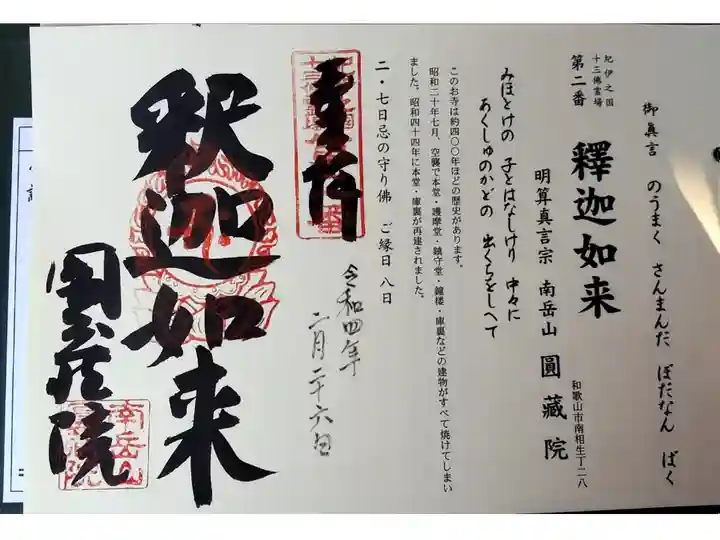 御真言 のうまく さんまんだ ぼだなん ばく
紀伊之国
十三佛霊場
第二番
釋迦如来
明算真言宗 南岳山 圓藏院
和歌山市南相生丁二八
みほとけの 子とはなしけり 中々に
あくしゅのかどの 出くちをしへて
このお寺は約四〇〇年ほどの歴史があります。
昭和二十年七月、空襲で本堂・護摩堂・鎮守堂・鐘楼・庫裏などの建物がすべて焼けてしまい
ました。昭和四十四年に本堂・庫裏が再建されました。
二・七日忌の守り佛 ご縁日 八日
令和四年
二月二十六日
奉拝
釈迦如来
圓藏院
南岳山